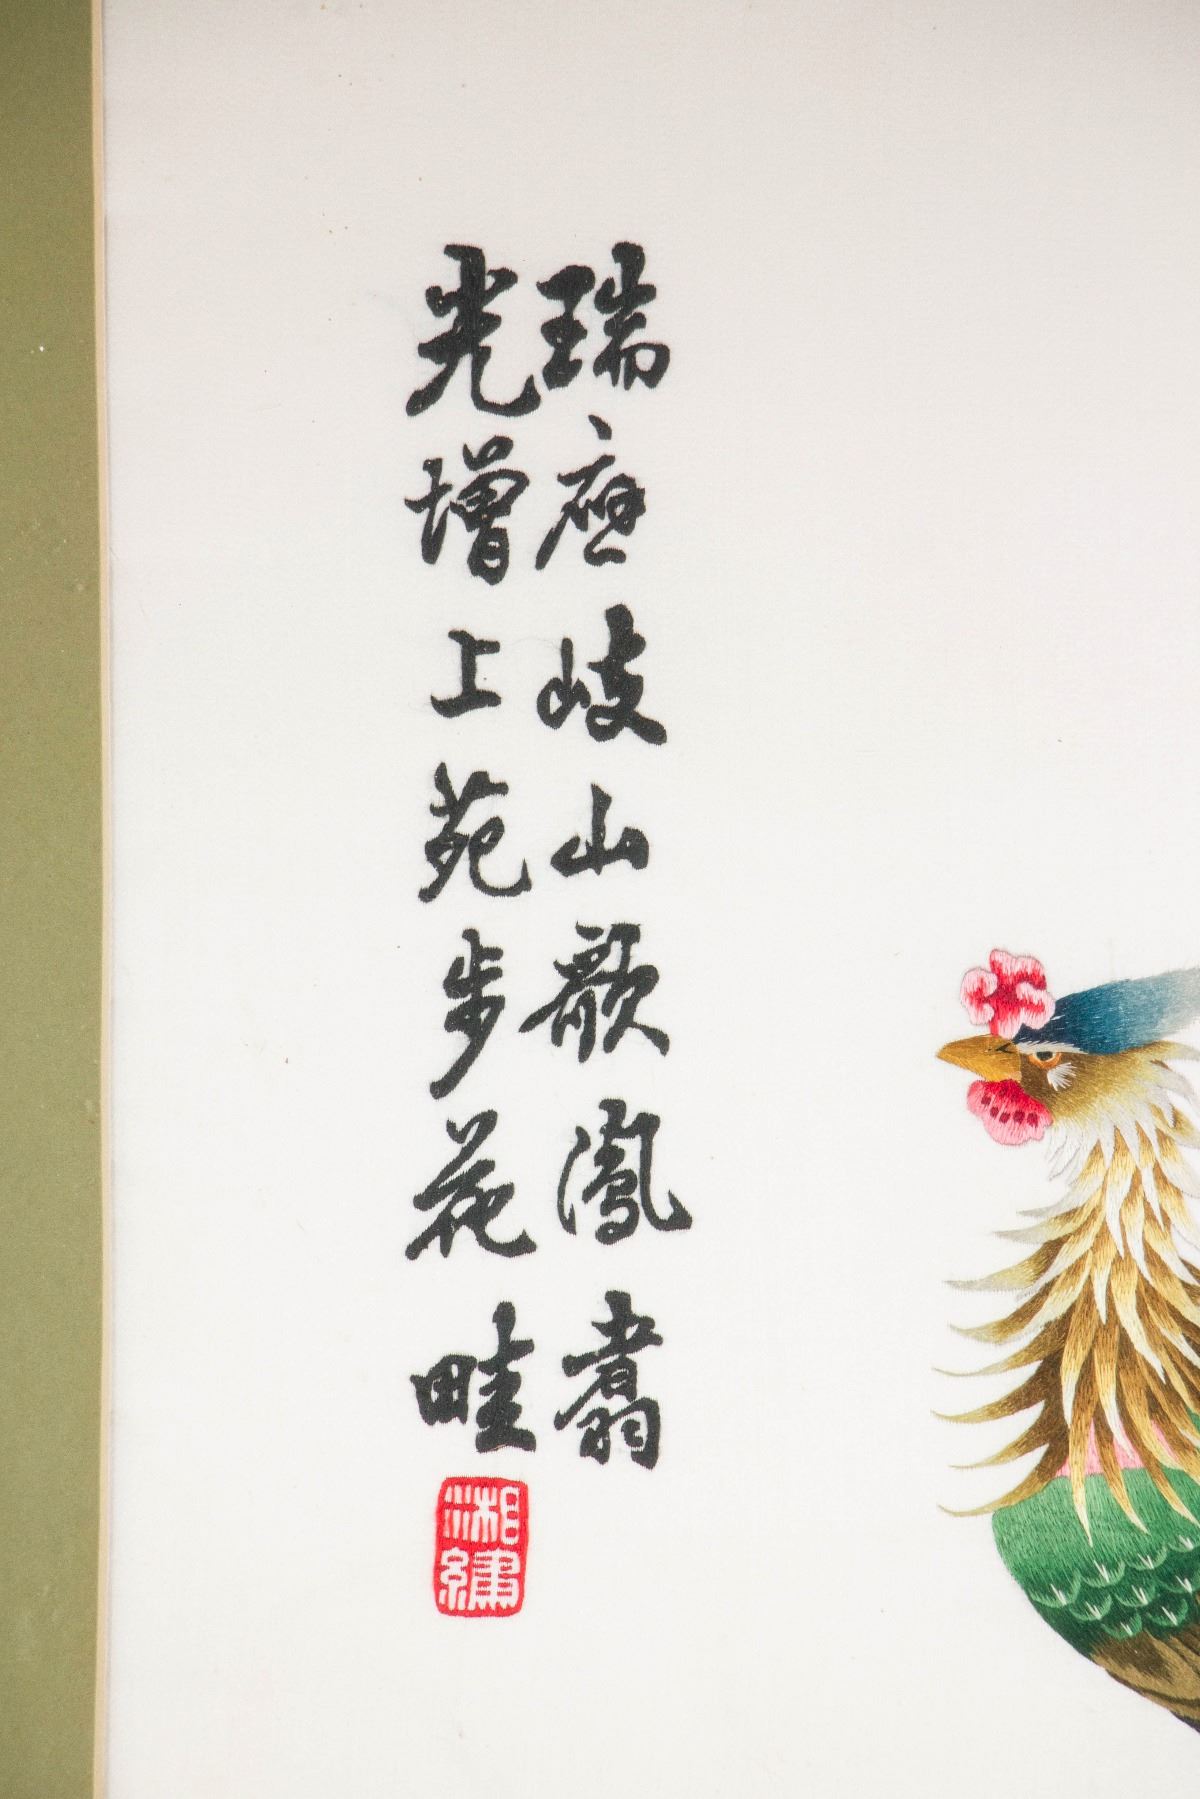 瑞應岐山歌鳳翥
光增上苑步花畦
湘繡